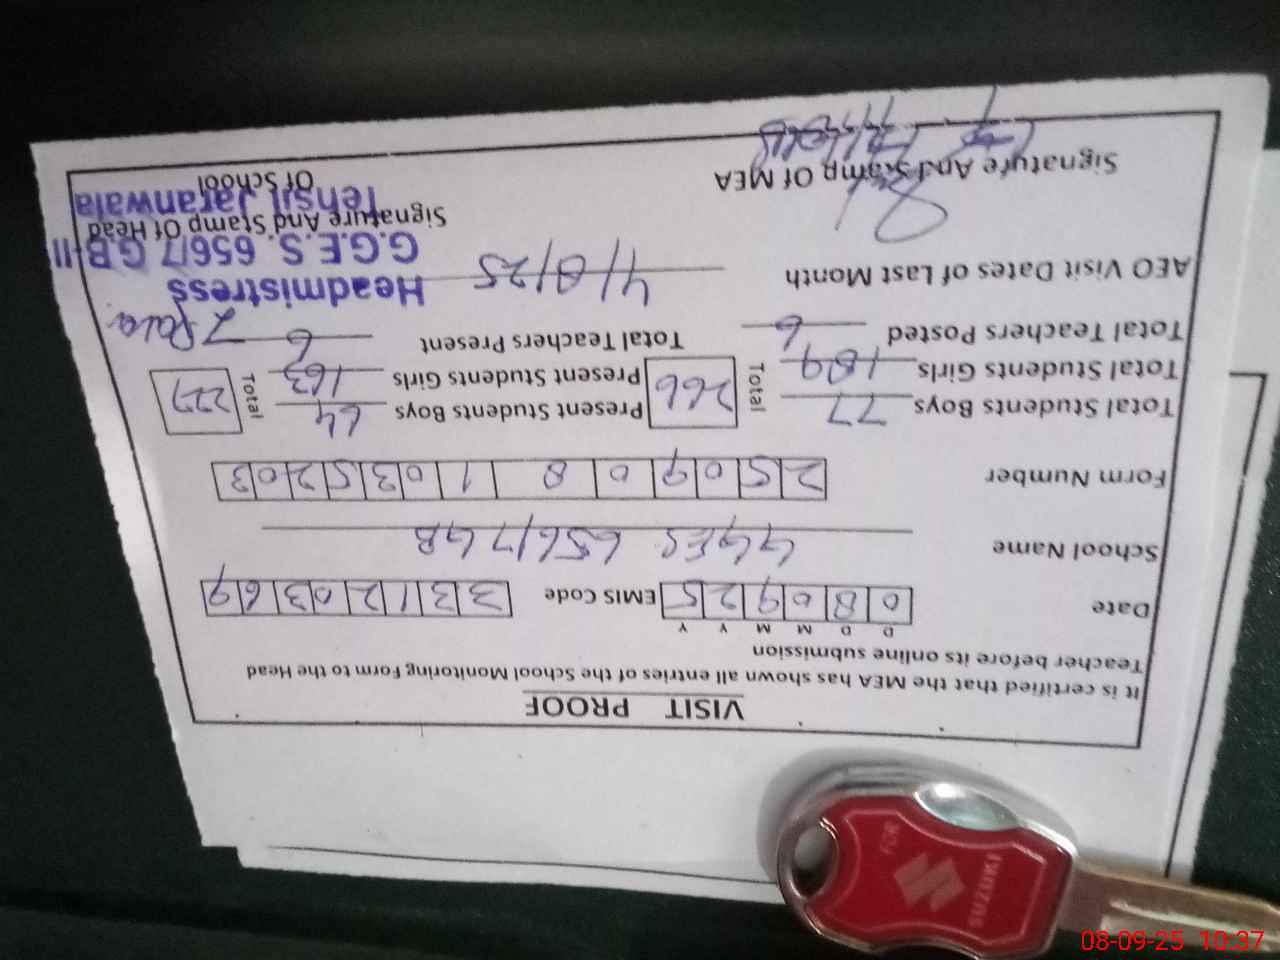 VISIT PROOF
It is certified that the MEA has shown all entries of the School Monitoring Form to the Head
Teacher before its online submission
D D M M Y Y
Date 0 8 0 9 2 5 EMIS Code 3 3 1 2 0 3 6 9
School Name GGES 656/7 GB
Form Number 2 5 0 9 0 8 1 0 3 5 2 0 3
Total Students Boys 77 Total 266 Present Students Boys 64 Total 227
Total Students Girls 189 Present Students Girls 163
Total Teachers Posted 6 Total Teachers Present 6
AEO Visit Dates of Last Month 4/8/25
Headmistress
G.G.E.S. 656/7 G.B-II
Tehsil Jaranwala
Signature And Stamp Of MEA
Signature And Stamp Of Head
Of School
SUZUKI
FSR
08-09-25 10:37